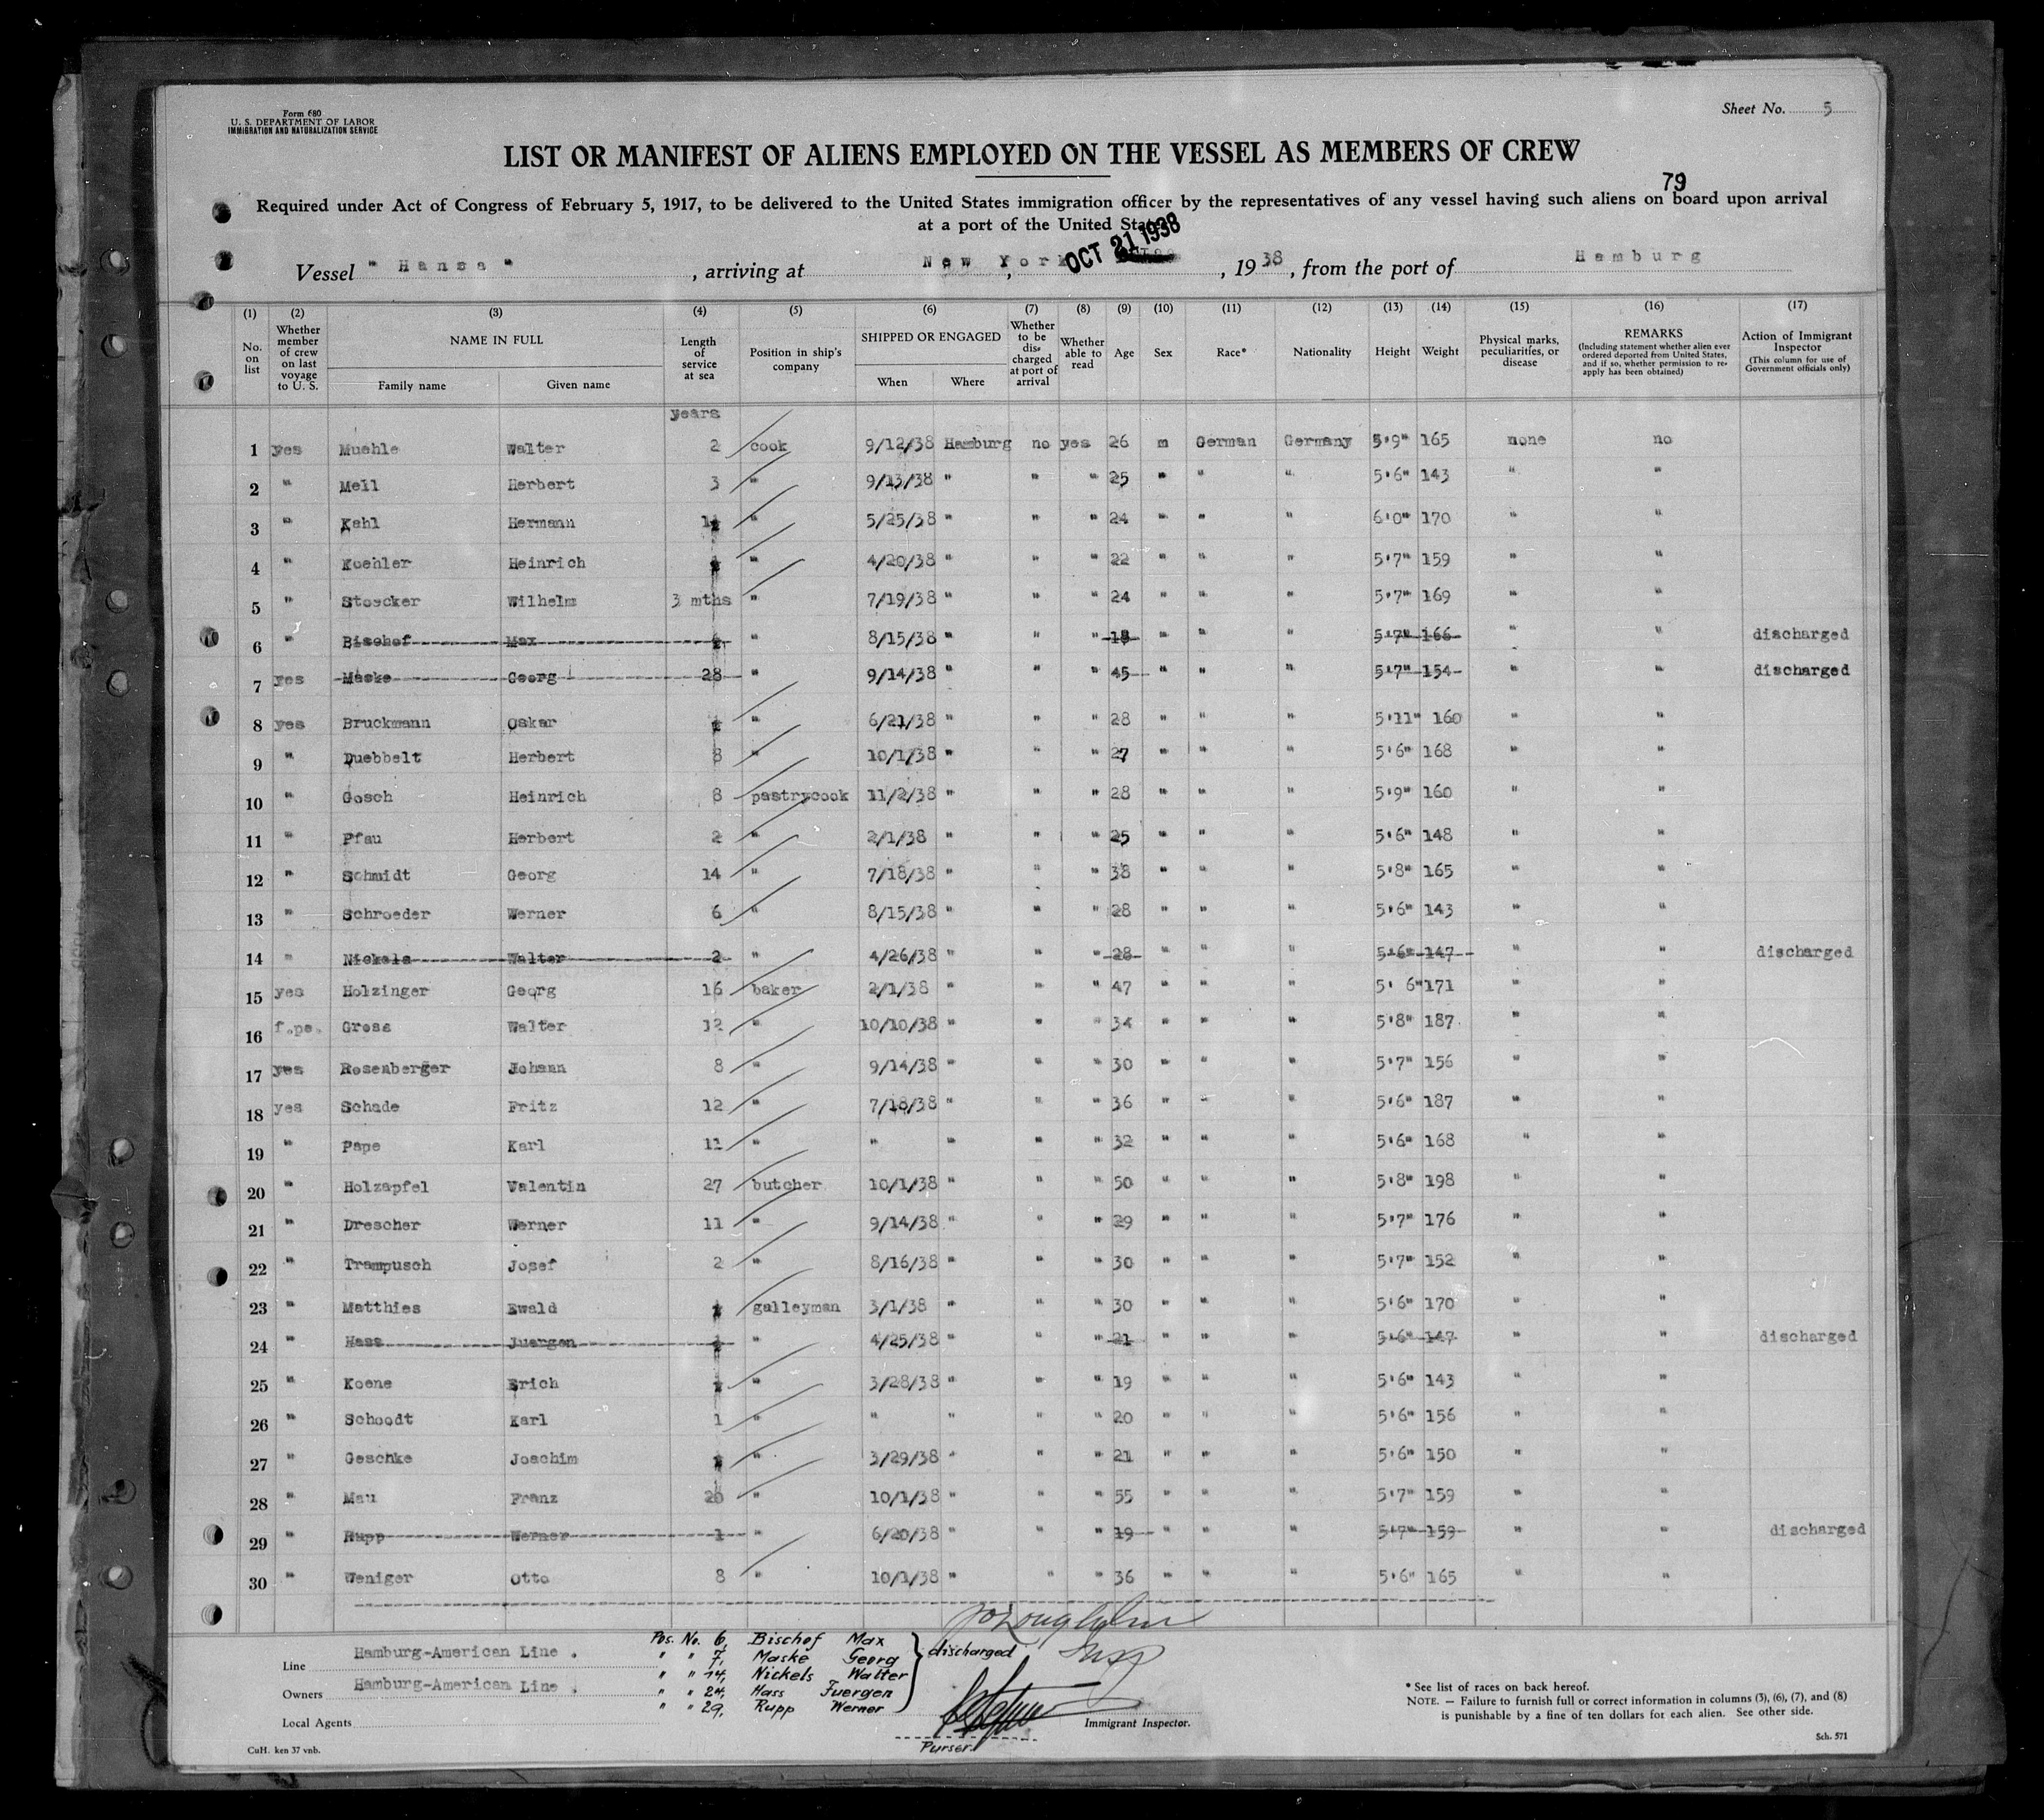 Form 680
U. S. DEPARTMENT OF LABOR
IMMIGRATION AND NATURALIZATION SERVICE
Sheet No. 5
LIST OR MANIFEST OF ALIENS EMPLOYED ON THE VESSEL AS MEMBERS OF CREW
79
Required under Act of Congress of February 5, 1917, to be delivered to the United States immigration officer by the representatives of any vessel having such aliens on board upon arrival
at a port of the United States
OCT 21 1938
Vessel "Hansa", arriving at New York, , 1938, from the port of Hamburg
(1) (2) (3) (4) (5) (6) (7) (8) (9) (10) (11) (12) (13) (14) (15) (16) (17)
No. on list
Whether member of crew on last voyage to U. S.
NAME IN FULL
Family name Given name
Length of service at sea
Position in ship's company
SHIPPED OR ENGAGED
When Where
Whether to be discharged at port of arrival
Whether able to read
Age
Sex
Race*
Nationality
Height
Weight
Physical marks, peculiarities, or disease
REMARKS
(Including statement whether alien ever ordered deported from United States, and if so, whether permission to reapply has been obtained)
Action of Immigrant Inspector
(This column for use of Government officials only)
years
1 yes Muehle Walter 2 cook 9/12/38 Hamburg no yes 26 m German Germany 5'9" 165 none no
2 " Mell Herbert 3 " 9/13/38 " " " 25 " " " 5'6" 143 " "
3 " Kahl Hermann " 5/25/38 " " " 24 " " " 6'0" 170 " "
4 " Koehler Heinrich " 4/20/38 " " " 22 " " " 5'7" 159 " "
5 " Stoecker Wilhelm 3 mths " 7/19/38 " " " 24 " " " 5'7" 169 " "
6 " Bischof Max " 8/15/38 " " " 18 " " " 5'7" 166 " " discharged
7 yes Maske Georg 28 " 9/14/38 " " " 45 " " " 5'7" 154 " " discharged
8 yes Bruckmann Oskar " 6/21/38 " " " 28 " " " 5'11" 160 " "
9 " Duebbelt Herbert 8 " 10/1/38 " " " 27 " " " 5'6" 168 " "
10 " Gosch Heinrich 8 pastrycook 11/2/38 " " " 28 " " " 5'9" 160 " "
11 " Pfau Herbert 2 " 2/1/38 " " " 25 " " " 5'6" 148 " "
12 " Schmidt Georg 14 " 7/18/38 " " " 38 " " " 5'8" 165 " "
13 " Schroeder Werner 6 " 8/15/38 " " " 28 " " " 5'6" 143 " "
14 " Nickels Walter 2 " 4/26/38 " " " 28 " " " 5'6" 147 " " discharged
15 yes Holzinger Georg 16 baker 2/1/38 " " " 47 " " " 5' 6" 171 " "
16 f.pe. Gross Walter 12 " 10/10/38 " " " 34 " " " 5'8" 187 " "
17 yes Rosenberger Johann 8 " 9/14/38 " " " 30 " " " 5'7" 156 " "
18 yes Schade Fritz 12 " 7/18/38 " " " 36 " " " 5'6" 187 " "
19 " Pape Karl 11 " " " " " 32 " " " 5'6" 168 " "
20 " Holzapfel Valentin 27 butcher 10/1/38 " " " 50 " " " 5'8" 198 " "
21 " Drescher Werner 11 " 9/14/38 " " " 29 " " " 5'7" 176 " "
22 " Trampusch Josef 2 " 8/16/38 " " " 30 " " " 5'7" 152 " "
23 " Matthies Ewald galleyman 3/1/38 " " " 30 " " " 5'6" 170 " "
24 " Hass Juergen " 4/25/38 " " " 21 " " " 5'6" 147 " " discharged
25 " Koene Erich " 3/28/38 " " " 19 " " " 5'6" 143 " "
26 " Schoodt Karl 1 " " " " " 20 " " " 5'6" 156 " "
27 " Geschke Joachim " 3/29/38 " " " 21 " " " 5'6" 150 " "
28 " Mau Franz 20 " 10/1/38 " " " 55 " " " 5'7" 159 " "
29 " Rupp Werner 1 " 6/20/38 " " " 19 " " " 5'7" 159 " " discharged
30 " Weniger Otto 8 " 10/1/38 " " " 36 " " " 5'6" 165 " "
Line Hamburg-American Line.
Owners Hamburg-American Line.
Local Agents
Pos. No. 6, Bischof Max
" " 7, Maske Georg
" " 14, Nickels Walter
" " 24, Hass Juergen
" " 29, Rupp Werner
discharged
Insp
Immigrant Inspector.
Purser
* See list of races on back hereof.
NOTE. — Failure to furnish full or correct information in columns (3), (6), (7), and (8)
is punishable by a fine of ten dollars for each alien. See other side.
CuH. ken 37 vnb.
Sch. 571